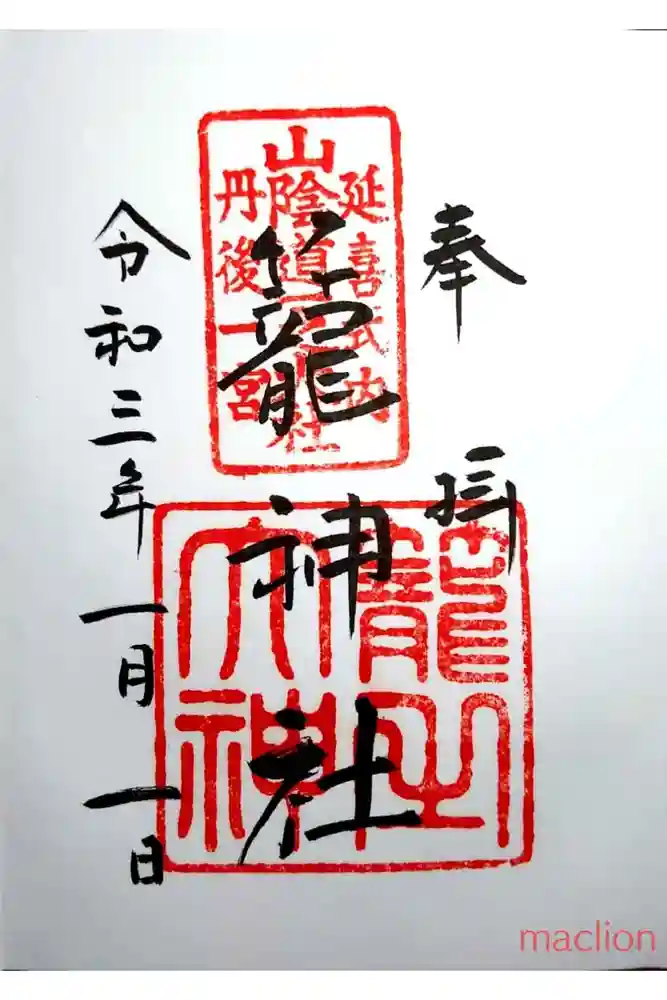 奉拝
延喜式内
山陰道一之大社
丹後一宮
籠神社
籠之
大神
令和三年一月一日
maclion